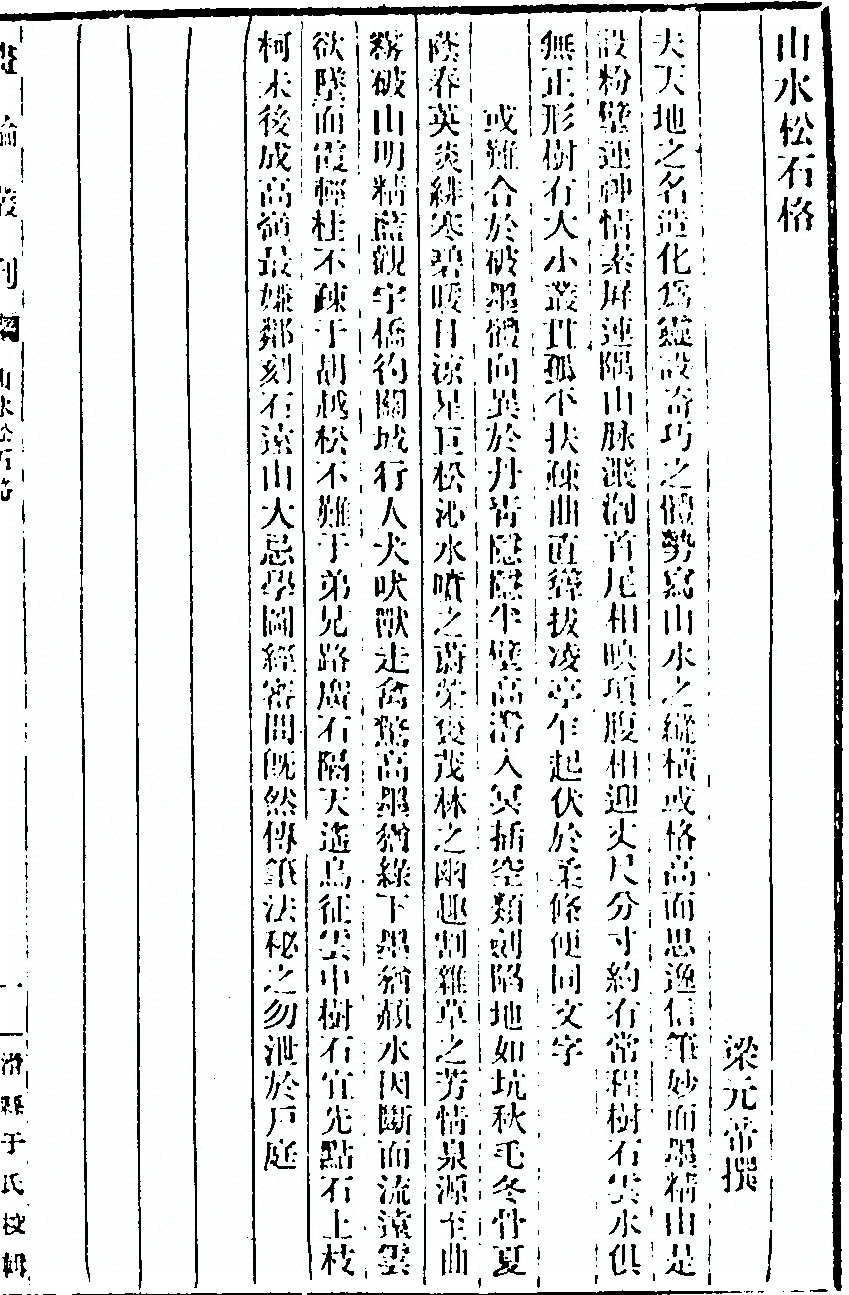 山水松石格
梁元帝撰
夫天地之名造化爲靈設奇巧之體勢寫山水之縱橫或格高而思逸信筆妙而墨精由是
設粉壁運神情素屏連隅山脉濺泃首尾相映項腹相迎丈尺分寸約有常程樹石雲水俱
無正形樹有大小叢貫孤平扶疎曲直聳拔凌亭乍起伏於柔條便同文字
或難合於破墨體向異於丹青隱隱半壁高潛入冥插空類劍陷地如坑秋毛冬骨夏
蔭春英炎緋寒碧暖日涼星巨松沁水噴之蔚茂林之幽趣割雜草之芳情泉源至曲
霧破山明精藍觀宇橋彴關城行人犬吠獸走禽驚高墨猶綠下墨猶赬水因斷而流遠雲
欲墜而霞輕桂不疎于胡越松不難于弟兄路廣石隔天遙鳥征雲中樹石宜先點石上枝
柯末後成高嶺最嫌鄰刻石遠山大忌學圖經審問既然傳筆法秘之勿泄於戶庭
畫論叢刊
山水松石格
一
滑縣于氏校輯